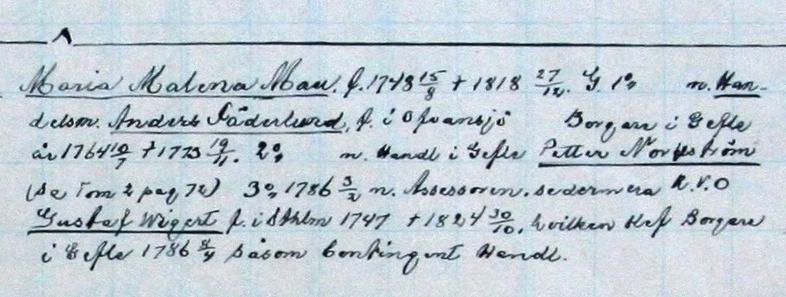 Maria Malena Mau. f. 1748 15/8 † 1818 27/12. G. 1o, m. Han-
delsm. Anders Söderlund, f. i Ofvansjö Borgare i Gefle
år 1764 10/7 † 1773 19/4. 2o, m. Handl i Gefle Petter Norström
(se Tom 2 pag 72) 3o, 1786 3/2 m. Assessoren, sedermera R.V.O
Gustaf Wigert f. i Sthlm 1747 † 1824 30/10, hvilken blef Borgare
i Gefle 1786 8/4 såsom Contingent Handl.